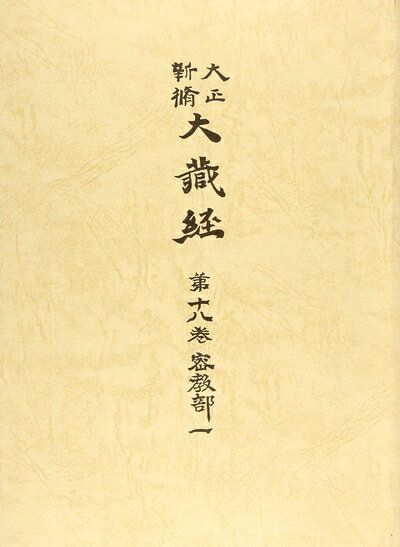 大正
新脩
大藏経
第十八巻 密教部一